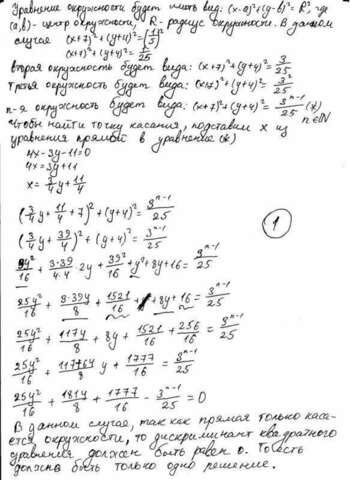 Уравнение окружности будет иметь вид: (x-a)²+(y-b)² = R², где
(a,b) - центр окружности, R - радиус окружности. В данном
случае (x+7)²+(y+4)²=
(x+7)²+(y+4)²=1/25
вторая окружность будет вида: (x+7)²+(y+4)²= 3/25
третья окружность будет вида: (x+7)²+(y+4)²= 3²/25
n-я окружность будет вида: (x+7)²+(y+4)²= 3ⁿ⁻¹/25 (*) n∈N
Чтобы найти точку касания, подставим x из
уравнения прямой в уравнение (*)
4x-3y-11=0
4x=3y+11
x= 3/4 y + 11/4
(3/4 y + 11/4 + 7)² + (y+4)² = 3ⁿ⁻¹/25
(3/4 y + 39/4)² + (y+4)² = 3ⁿ⁻¹/25
9y²/16 + 3·39/4·4 · 2y + 39²/16 + y² + 8y + 16 = 3ⁿ⁻¹/25
25y²/16 + 3·39y/8 + 1521/16 + 8y + 16 = 3ⁿ⁻¹/25
25y²/16 + 117y/8 + 8y + 1521/16 + 256/16 = 3ⁿ⁻¹/25
25y²/16 + 117+64/8 y + 1777/16 = 3ⁿ⁻¹/25
25y²/16 + 181y/8 + 1777/16 - 3ⁿ⁻¹/25 = 0
В данном случае, так как прямая только каса-
ется окружности, то дискриминант квадратного
уравнения должен быть равен 0. То есть
должно быть только одно решение.
1